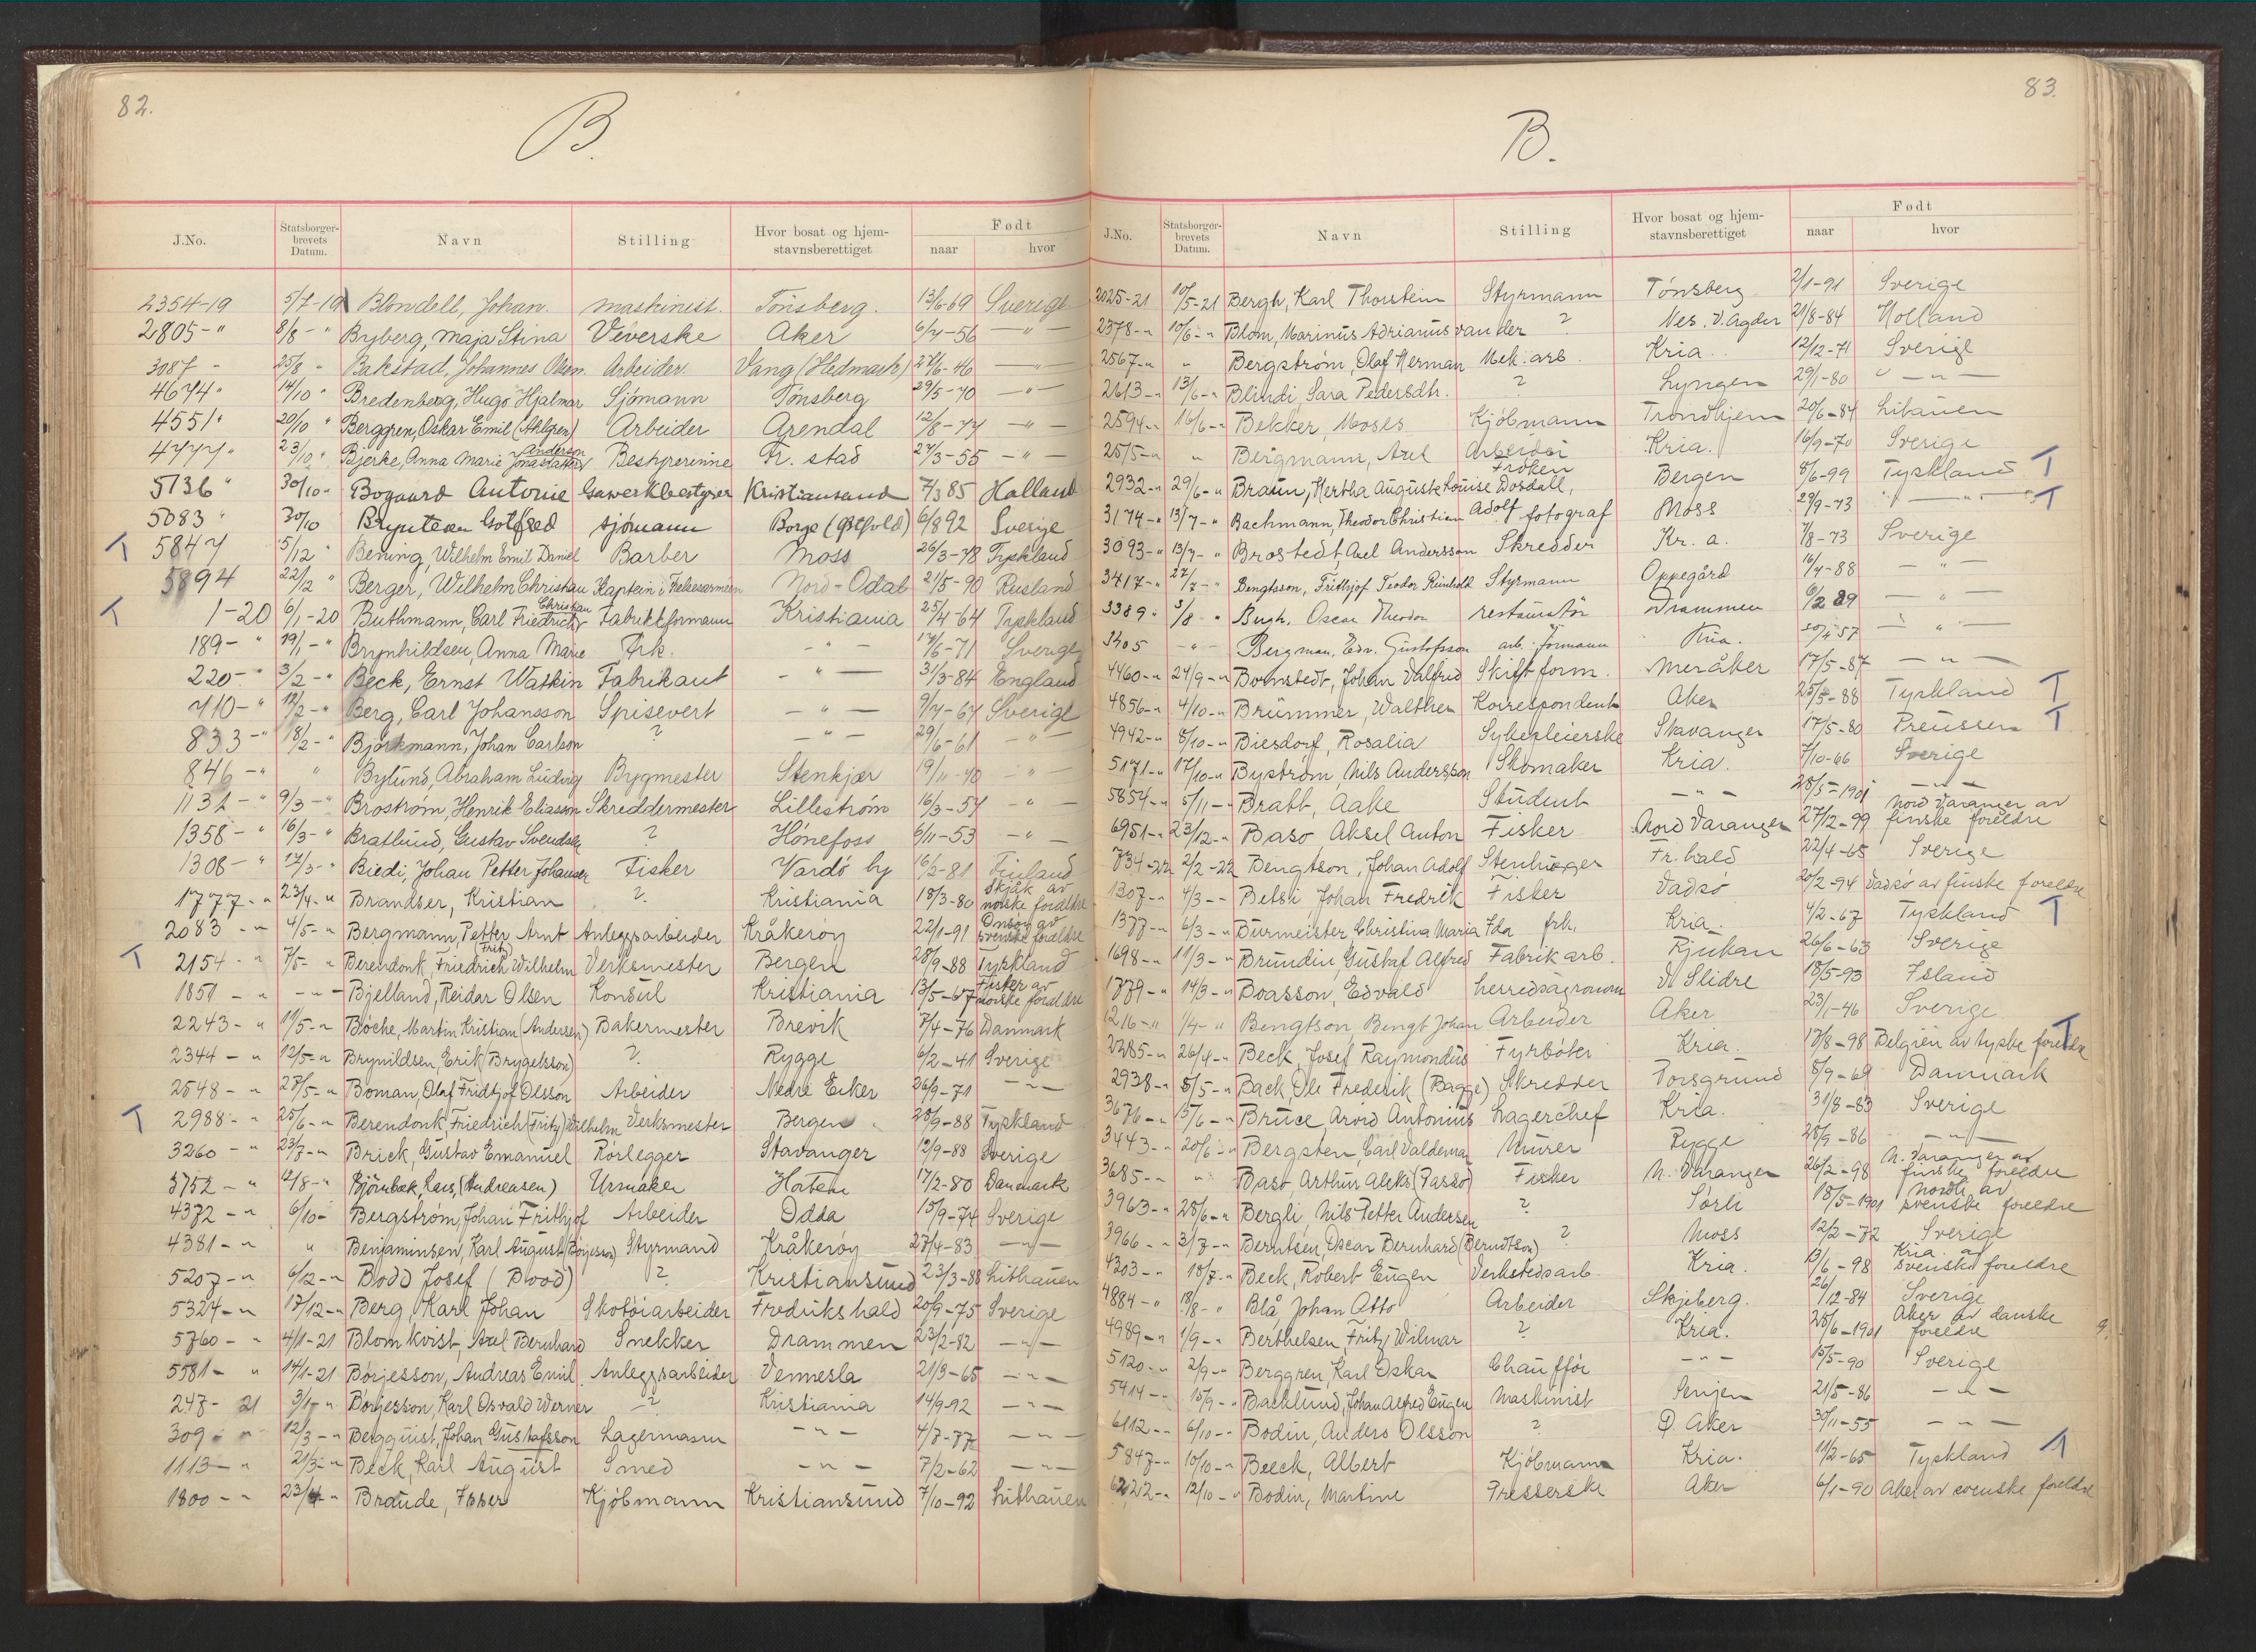 82.
B.
J.No. Statsborger-brevets Datum. Navn Stilling Hvor bosat og hjem-stavnsberettiget Født naar hvor
2354-19 5/7-19 Blondell, Johan. maskinist. Tønsberg. 13/6-69 Sverige
2805-" 8/8-" Byberg, Maja Stina Veverske Aker 6/7-56 -"-
3087 - 25/8 " Bakstad, Johannes Olsen. Arbeider Vang (Hedmark) 27/6-46 -"-
4674" 14/10 " Bredenberg, Hugo Hjalmar Sjømann Tønsberg 29/5-70 -"-
4551" 20/10 " Berggren, Oskar Emil (Ahlgren) Arbeider Arendal 12/8-77 -"-
4777" 23/10 " Bjerke, Anna Marie Anderson Jonasdatter Bestyrerinne Fr. stad 27/3-55 -"-
5136 " 30/10- Bogaard Antonie Gaverkbestyrer Kristiansand 7/3 85 Holland
5083 " 30/10 Bryntesen Gotfred sjømann Borge (Østfold) 6/8 92 Sverige
T 5847 5/12 " Bening, Wilhelm Emil Daniel Barber Moss 26/3-78 Tyskland
5894 22/12 " Berger, Wilhelm Christian Kaptein i Frelsesarmeen Nord-Odal 21/5-90 Rusland
T 1-20 6/1-20 Buthmann, Carl Friedrich Christian Fabrikkformann Kristiania 25/4-64 Tyskland
189-" 19/1-" Brynhildsen, Anna Marie Frk. -"- 17/6-71 Sverige
220-" 3/2-" Beck, Ernst Watkin Fabrikant -"- 31/3-84 England
710-" 12/2-" Berg, Carl Johansson Spisevert -"- 9/7-67 Sverige
833-" 18/2-" Björkmann, Johan Carlson ? -"- 29/6-61 -"-
846-" " Bylund, Abraham Ludvig Bygmester Stenkjær 19/11-40 -"-
1132-" 9/3-" Broström, Henrik Eliasson Skreddermester Lillestrøm 16/3-57 -"-
1358-" 16/3-" Bratlund, Gustav Svendsen ? Hønefoss 6/11-53 -"-
1308-" 17/3-" Biedi, Johan Petter Johansen Fisker Vardø by 16/2-81 Finland
1777-" 23/4-" Brandser, Kristian ? Kristiania 18/3-80 Skjåk av norske foreldre
2083-" 4/5-" Bergmann, Petter Arnt Anleggsarbeider Kråkerøy 22/1-91 Onsøy av svenske foreldre
T 2154-" 7/5-" Berendonk, Friedrich (Fritz) Wilhelm Verksmester Bergen 28/9-88 Tyskland
1851-" -"- Bjelland, Reidar Olsen Konsul Kristiania 13/5-67 Fister av norske foreldre
2243-" 11/5-" Bøche, Martin Kristian (Andersen) Bakermester Brevik 7/4-76 Danmark
2344-" 12/5-" Brynildsen, Erik (Brygelsson) ? Rygge 6/2-41 Sverige
2548-" 27/5-" Boman, Olaf Fridtjof Olsson Arbeider Nedre Eiker 26/9-71 -"-
T 2988-" 25/6-" Berendonk, Friedrich (Fritz) Wilhelm Verksmester Bergen 28/9-88 Tyskland
3260-" 23/7-" Brick, Gustav Emanuel Rørlegger Stavanger 12/9-88 Sverige
3752-" 12/8-" Bjørnbæk, Lars, (Andreasen) Urmaker Hatem 17/2-80 Danmark
4372-" 6/10- Bergstrøm, Johan Frithjof Arbeider Odda 15/9-74 Sverige
4381-" " Benjaminsen, Karl August (Börjesson) Styrmand Kråkerøy 27/4-83 -"-
5207-" 6/12-" Bodd Josef (Bood) ? Kristiansund 23/3-88 Lithauen
5324-" 17/12-" Berg Karl Johan Skotøiarbeider Fredrikshald 20/9-75 Sverige
5760-" 4/1-21 Blomkvist, Axel Bernhard Snekker Drammen 23/2-82 -"-
5581-" 14/1-21 Börjesson, Andreas Emil. Anleggsarbeider Vennesla 21/3-65 -"-
247-21 3/1-" Börjesson, Karl Osvald Werner ? Kristiania 14/9-92 -"-
309-" 12/3-" Bergquist, Johan Gustafsson Lagermann -"- 4/7-77 -"-
1113-" 21/3-" Beck, Karl August Smed -"- 7/2-62 -"-
1800-" 23/4-" Braude, Isser Kjøbmann Kristiansund 7/10-92 Lithauen
83.
B.
J.No. Statsborger-brevets Datum. Navn Stilling Hvor bosat og hjem-stavnsberettiget Født naar hvor
2025-21 10/5-21 Bergh, Karl Thorstein Styrmann Tønsberg 2/1-91 Sverige
2378-" 10/6-" Blom, Marinus Adrianus van der ? Nes. V. Agder 21/8-84 Holland
2567-" " Bergström, Olaf Herman Mek. arb. Kria. 12/12-71 Sverige
2613-" 13/6-" Blindi, Sara Pedersdtr. ? Lyngen 29/1-80 -"-
2594-" 16/6-" Bekker, Moses Kjøbmann Trondhjem 20/6-84 Litauen
2575-" " Bergmann, Axel Arbeider Kria. 16/9-70 Sverige
2932-" 29/6-" Braun, Hertha Auguste Louise Dosdall, Frøken Bergen 8/6-99 Tyskland T
3174-" 13/7-" Bachmann, Theodor Christian Adolf fotograf Moss 29/9-73 -"- T
3093-" 13/7-" Brostedt, Axel Andersson Skredder Kr. a. 7/8-73 Sverige
3417-" 27/7-" Bengtsson, Frithjof Teodor Reinhold Styrmann Oppegård 16/4-88 -"-
3389-" 3/8 " Bugh, Oscar Theodor restauratør Drammen 6/2 89 -"-
3405 -"- Bergman, Edv. Gustofsson arb. formann Kria. 30/4 57 -"-
4460-" 24/9-" Bomstedt, Johan Valfrid Skiftform. Meråker 17/5-87 -"-
4856-" 4/10-" Brümmer, Walther Korrespondent Aker 25/5-88 Tyskland T
4942-" 8/10-" Biesdorf, Rosalia Sykepleierske Stavanger 17/5-80 Preussen T
5171-" 17/10-" Byström, Nils Andersson Skomaker Kria. 7/10-66 Sverige
5854-" 5/11-" Bratt, Aake Student -"- 28/5-1901 -"-
6951-" 23/12-" Baso Aksel Anton Fisker Nord Varanger 27/12-99 Nord Varanger av finske foreldre
734-22 2/2-22 Bengtson, Johan Adolf Stenhugger Fr. hald 22/4-65 Sverige
1307-" 4/3-- Betsi Johan Fredrik Fisker Vadsø 20/2-94 Vadsø av finske foreldre
1377-" 6/3-" Burmeister Christina Maria Ida frk. Kria. 4/2-67 Tyskland T
1698-" 11/3-" Brundin, Gustaf Alfred Fabrik arb. Rjukan 26/6-63 Sverige
1779-" 14/3-" Boasson, Edvald herredsagronom V Slidre 18/5-93 Island
6216-" 1/4-" Bengtson Bengt Johan Arbeider Aker 23/1-46 Sverige
2285-" 26/4-" Beck, Josef Raymondus Fyrbøter Kria. 17/8-98 Belgien av tyske foreldre T
2938-" 5/5-" Back, Ole Frederik (Bagge) Skredder Porsgrund 8/9-69 Danmark
3676-" 15/6-" Bruce, Arvid Antonius Lagerchef Kria. 31/8-83 Sverige
3443-" 20/6-" Bergsten, Carl Valdemar Murer Rygge 28/9-86 -"-
3685-" " Baso, Arthur Aleks (Passo) Fisker N. Varanger 26/2-98 N. Varanger av finske foreldre
3963-" 28/6-" Bergli, Nils Petter Andersen ? Sørli 18/5-1901 Nordli av svenske foreldre
3966-" 3/7-" Berntsen, Oscar Bernhard (Berndtson) ? Moss 12/2-72 Sverige
4203-" 18/7-" Beck, Robert Eugen Verkstedsarb. Kria. 13/6-98 Kria. av svenske foreldre
4884-" 18/8-" Blå, Johan Otto Arbeider Skjeberg. 26/12-84 Sverige
4989-" 1/9-" Berthelsen, Fritz Wilmar ? Kria. 28/6-1901 Aker av danske foreldre 9.
5120-" 2/9-" Berggren, Karl Oskar Chauffør -"- 15/5-90 Sverige
5414-" 15/9-" Backlund, Johan Alfred Eugen Maskinist Senjen 21/5-86 -"-
6112-" 6/10-" Bodin, Anders Olsson ? Ø. Aker 30/11-55 -"-
5847-" 10/10-" Beeck, Albert Kjøbmann Kria. 11/2-65 Tyskland T
6222-" 12/10-" Bodin, Martine Presserske Aker 6/1-90 Aker av svenske foreldre